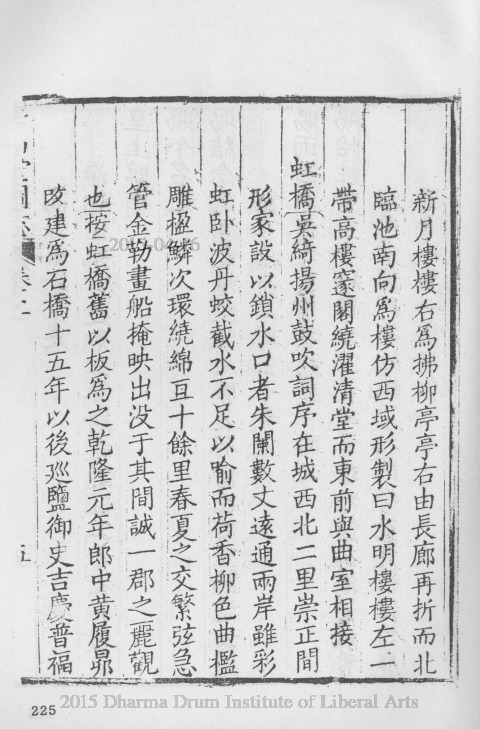 新月樓樓右爲拂柳亭亭右由長廊再折而北
臨池南向爲樓仿西域形製曰水明樓樓左一
帶高樓邃閣繞濯清堂而東前與曲室相接
虹橋吳綺揚州鼓吹詞序在城西北二里崇正間
形家設以鎖水口者朱闌數丈遠通兩岸雖彩
虹卧波丹蛟截水不足以喻而荷香柳色曲檻
雕楹鱗次環繞綿亘十餘里春夏之交繁弦急
管金勒畫船掩映出没于其間誠一郡之麗觀
也按虹橋舊以板爲之乾隆元年郎中黃履昴
改建爲石橋十五年以後巡鹽御史吉慶普福
卷十二
五
225
2015 Dharma Drum Institute of Liberal Arts